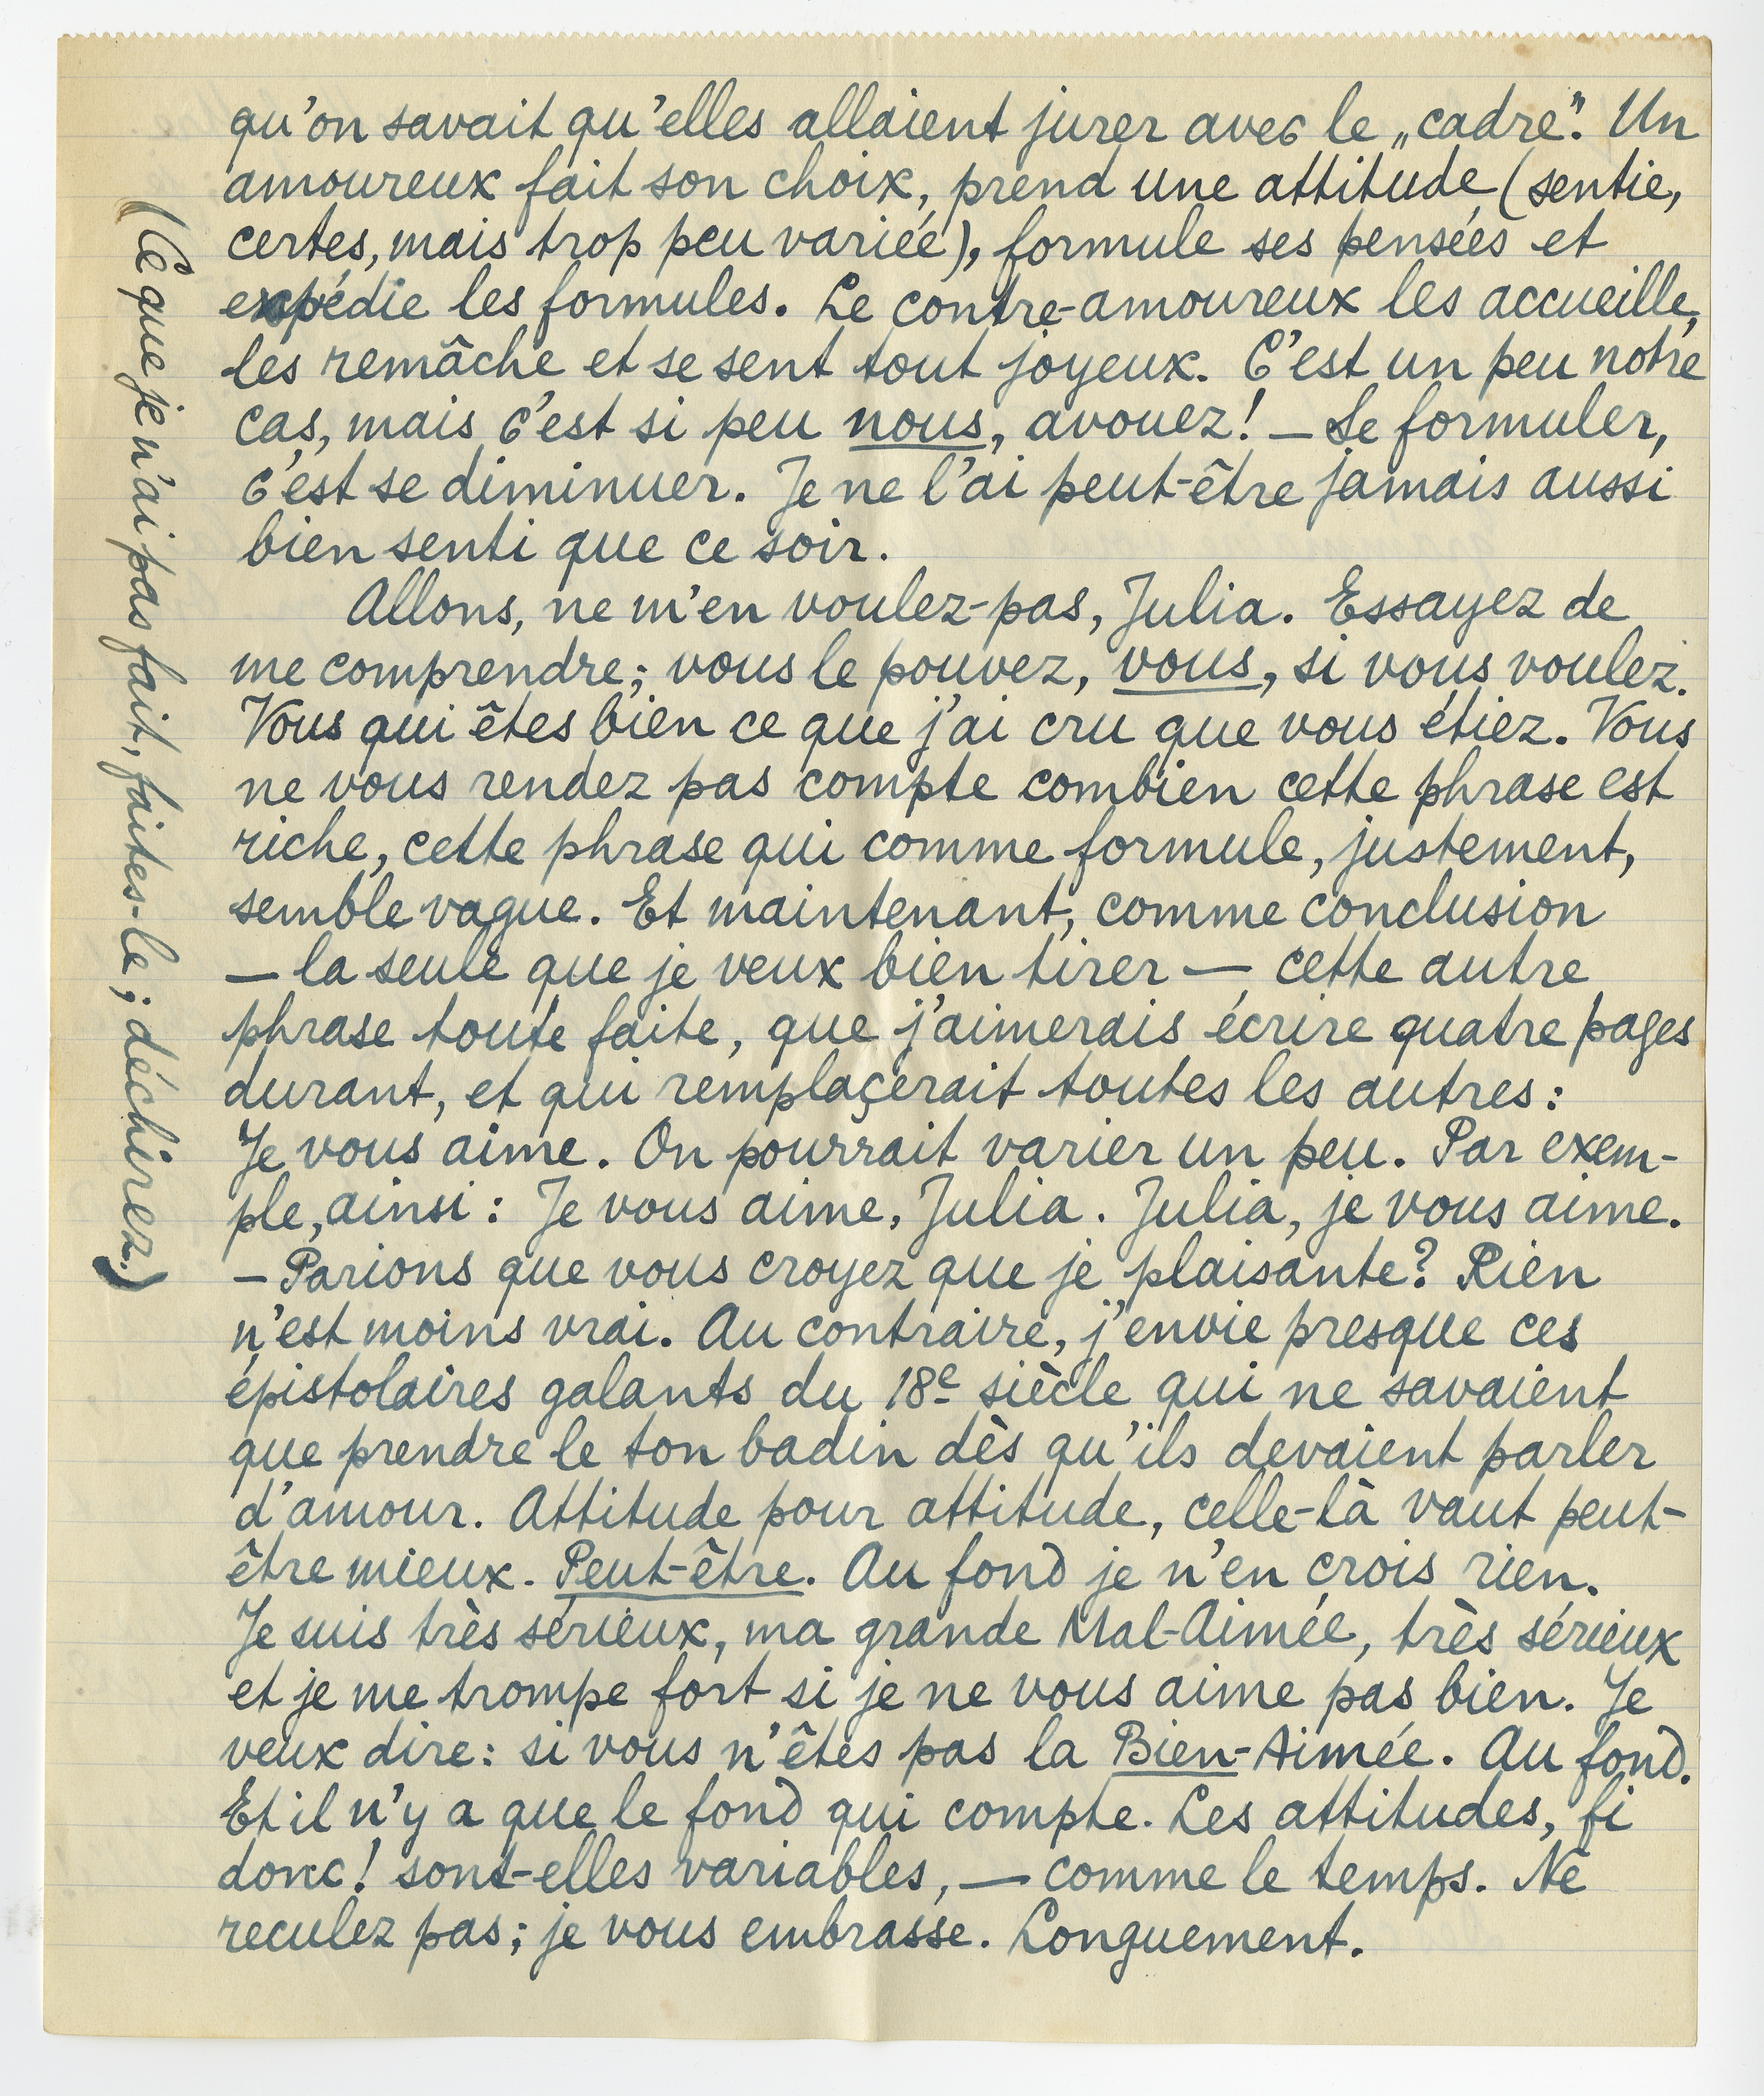 qu'on savait qu'elles allaient jurer avec le „cadre". Un
amoureux fait son choix, prend une attitude (sentie,
certes, mais trop peu variée), formule ses pensées et
expédie les formules. Le contre-amoureux les accueille,
les remâche et se sent tout joyeux. C'est un peu notre
cas, mais c'est si peu nous, avouez! — Se formuler,
c'est se diminuer. Je ne l'ai peut-être jamais aussi
bien senti que ce soir.
Allons, ne m'en voulez-pas, Julia. Essayez de
me comprendre; vous le pouvez, vous, si vous voulez.
Vous qui êtes bien ce que j'ai cru que vous étiez. Vous
ne vous rendez pas compte combien cette phrase est
riche, cette phrase qui comme formule, justement,
semble vague. Et maintenant, comme conclusion
— la seule que je veux bien tirer — cette autre
phrase toute faite, que j'aimerais écrire quatre pages
durant, et qui remplaçerait toutes les autres:
Je vous aime. On pourrait varier un peu. Par exem-
ple, ainsi: Je vous aime, Julia. Julia, je vous aime.
— Parions que vous croyez que je plaisante? Rien
n'est moins vrai. Au contraire, j'envie presque ces
épistolaires galants du 18e siècle qui ne savaient
que prendre le ton badin dès qu'ils devaient parler
d'amour. Attitude pour attitude, celle-là vaut peut-
être mieux. Peut-être. Au fond je n'en crois rien.
Je suis très sérieux, ma grande Mal-Aimée, très sérieux
et je me trompe fort si je ne vous aime pas bien. Je
veux dire: si vous n'êtes pas la Bien-Aimée. Au fond.
Et il n'y a que le fond qui compte. Les attitudes, fi
donc! sont-elles variables, — comme le temps. Ne
reculez pas; je vous embrasse. Longuement.
(Ce que je n'ai pas fait, faites-le; déchirez.)